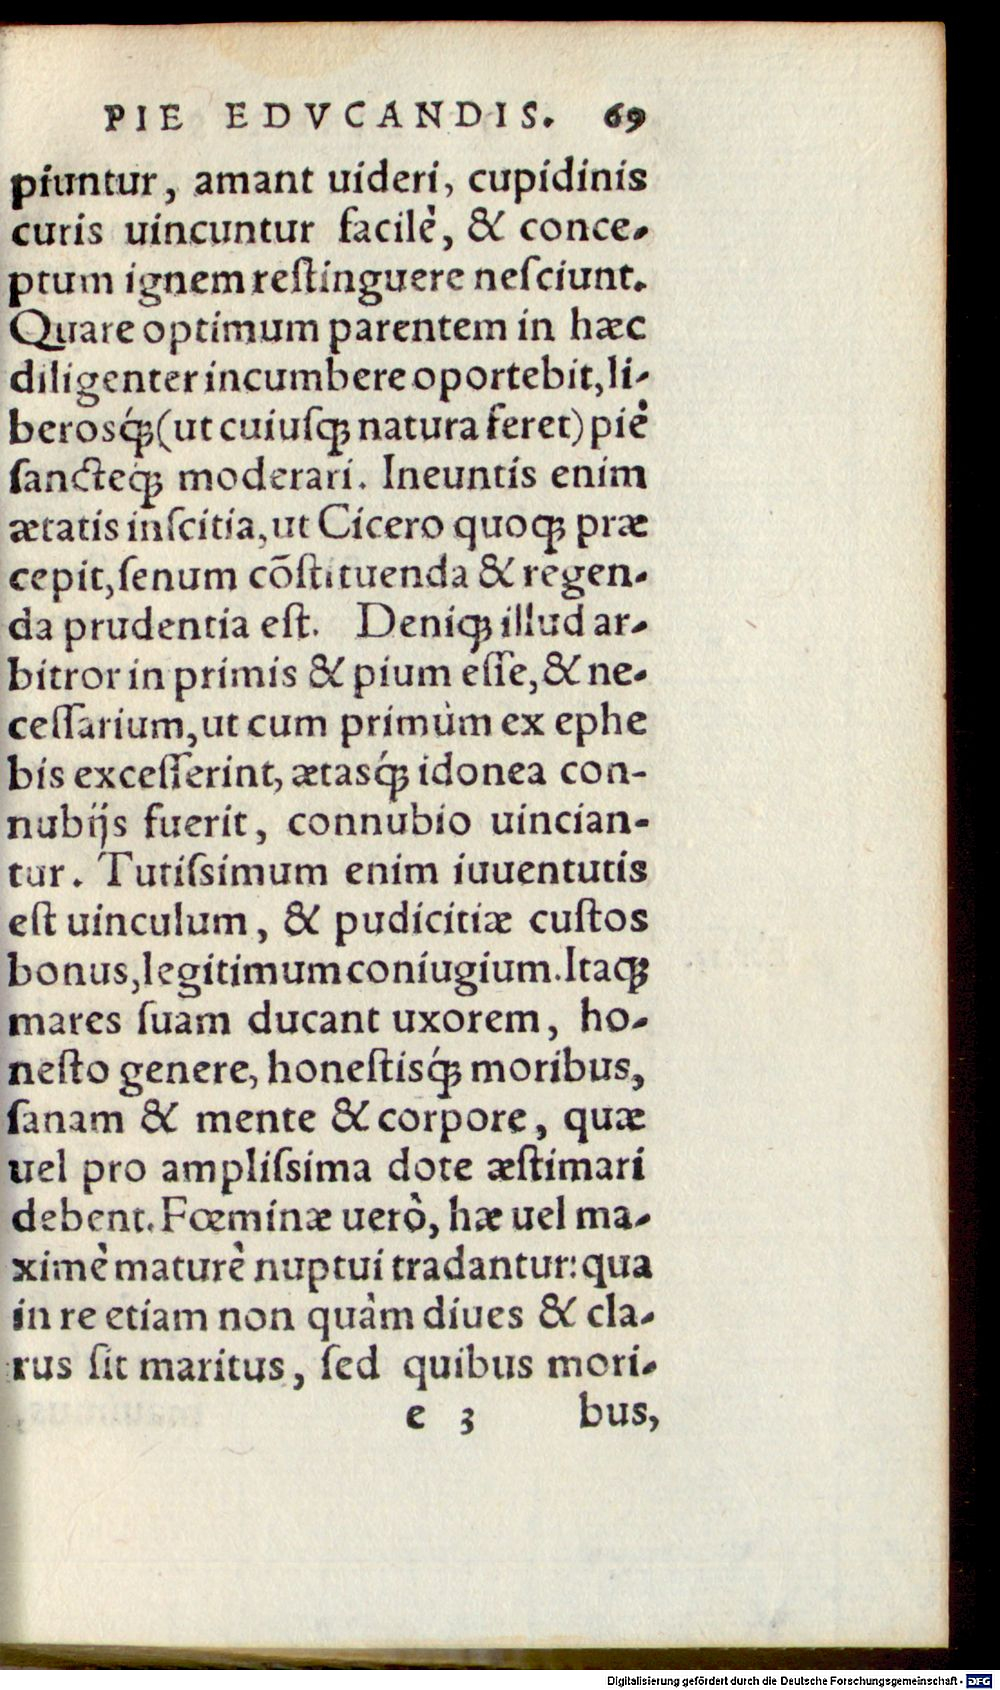 PIE EDVCANDIS. 69
piuntur, amant uideri, cupidinis
curis uincuntur facilè, & conce-
ptum ignem reſtinguere neſciunt.
Quare optimum parentem in hæc
diligenter incumbere oportebit, li-
berosq́ꝫ (ut cuiuſqꝫ natura feret) piè
ſancteqꝫ moderari. Ineuntis enim
ætatis inſcitia, ut Cicero quoqꝫ præ
cepit, ſenum cõſtituenda & regen-
da prudentia eſt. Deniqꝫ illud ar-
bitror in primis & pium eſſe, & ne-
ceſſarium, ut cum primùm ex ephe
bis exceſſerint, ætasq́ꝫ idonea con-
nubijs fuerit, connubio uincian-
tur. Tutiſsimum enim iuuentutis
eſt uinculum, & pudicitiæ cuſtos
bonus, legitimum coniugium. Itaqꝫ
mares ſuam ducant uxorem, ho-
neſto genere, honeſtisq́ꝫ moribus,
ſanam & mente & corpore, quæ
uel pro ampliſsima dote æſtimari
debent. Fœminæ uerò, hæ uel ma-
ximè maturè nuptui tradantur: qua
in re etiam non quàm diues & cla-
rus ſit maritus, ſed quibus mori-
e 3 bus,
Digitalisierung gefördert durch die Deutsche Forschungsgemeinschaft - DFG